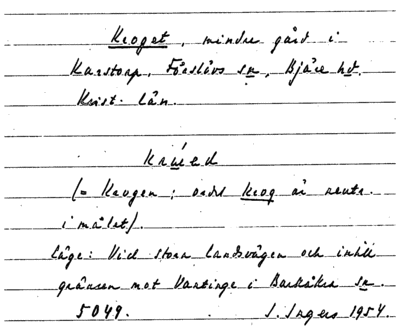 Kroget, mindre gård i
Karstorp, Förslövs sn, Bjäre hd.
Krist. län.
kråed
(= Krogen; ordet krog är neutr.
i målet).
Läge: Vid stora landsvägen och intill
gränsen mot Vantinge i Barkåkra sn.
5049. I. Ingers 1954.